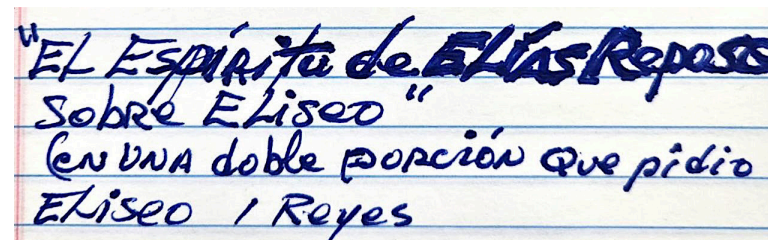 "EL Espíritu de ELíAS Reposo
Sobre ELiseo"
(EN UNA doble porción que pidio
ELiseo 1 Reyes